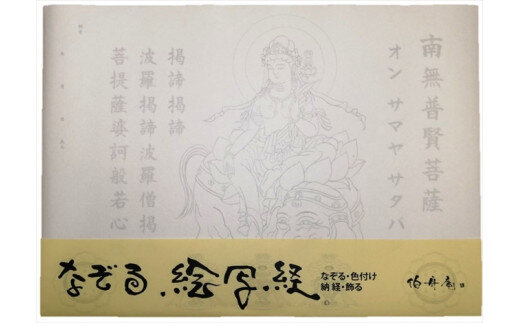 南無普賢菩薩
オン サマヤ サタバ
掲諦掲諦
波羅掲諦波羅僧掲
菩提薩婆訶般若心
なぞる 絵写経
なぞる・色付け
納経・飾る